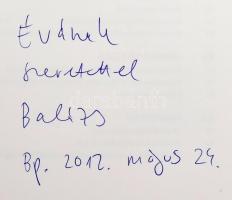 Évának
szeretettel
Balázs
Bp. 2012. május 24.